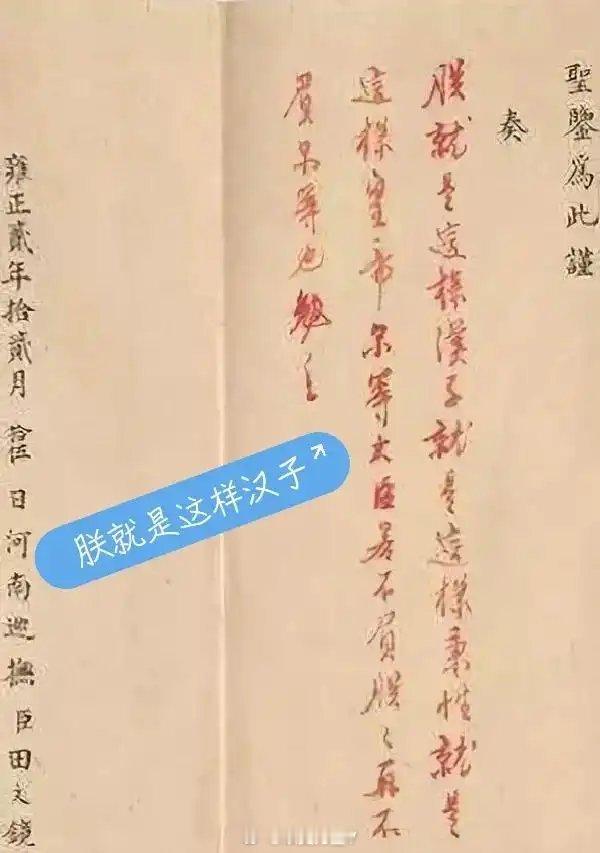 聖鑒爲此謹
奏
朕就是這樣漢子就是這樣秉性就是
這樣皇帝尔等大臣若不負朕〻再不
負尔等也勉之
雍正貳年拾貳月拾伍日河南巡撫臣田文鏡
朕就是这样汉子